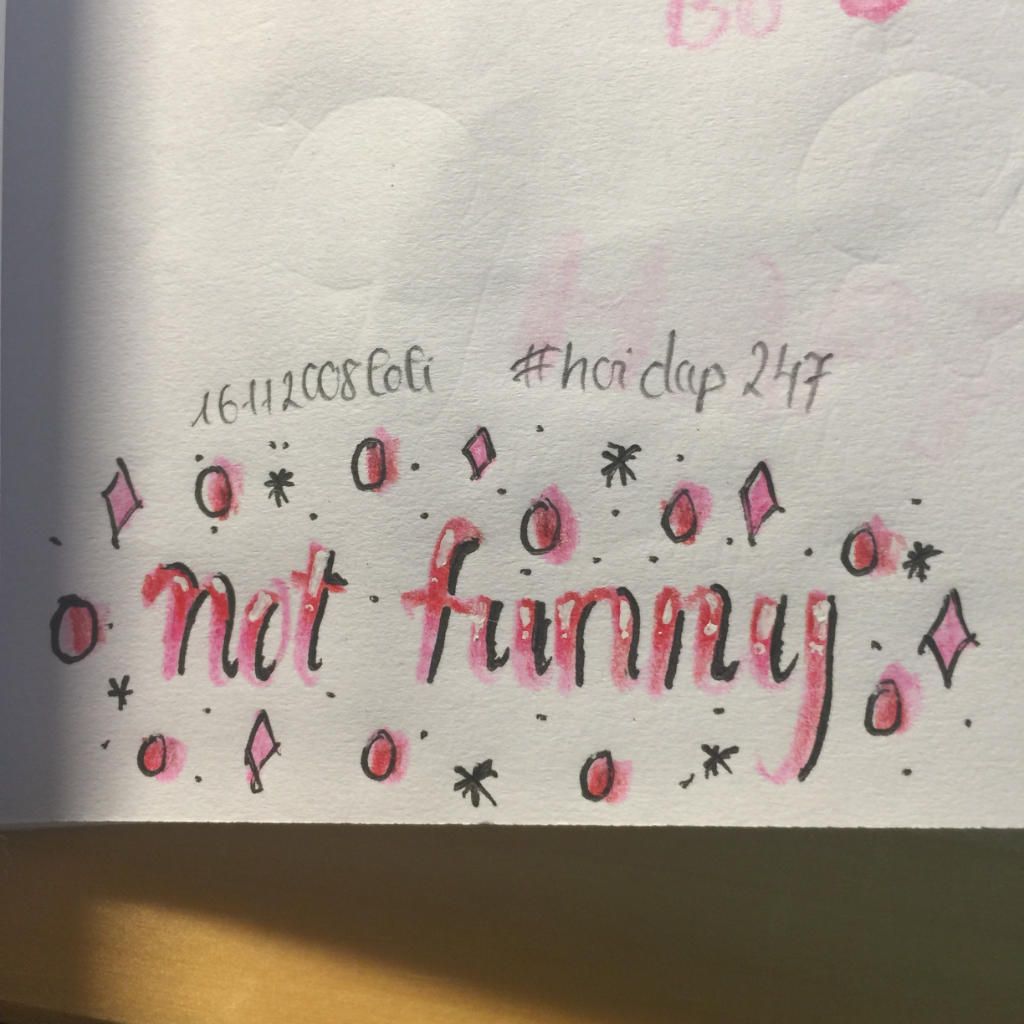 16112008loli #hoidap247
not funny